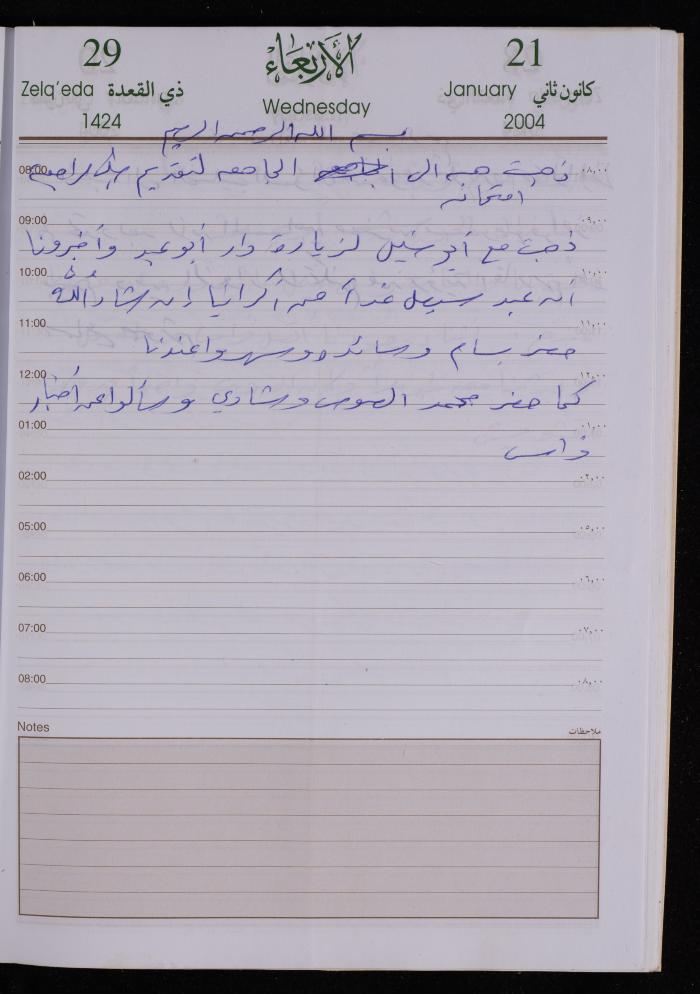 29 الأربعاء 21
Zelq'eda ذي القعدة Wednesday January كانون ثاني
1424 2004
بسم الله الرحمن الرحيم
08:00 ذهبت هبه الى الجامعه لتقديم ٠٨,٠٠
امتحانه
09:00 ٠٩,٠٠
ذهبت مع أبو نبيل لزيارة دار أبو عبد وأخبرونا
10:00 ١٠,٠٠
أنه عبد سيصل غداً من أكرانيا إن شاء الله
11:00 ١١,٠٠
حضر بسام وسائد وسهروا عندنا
12:00 ١٢,٠٠
كما حضر محمد الصوص وشادي وسألوا عن أخبار
01:00 ٠١,٠٠
فراس
02:00 ٠٢,٠٠
05:00 ٠٥,٠٠
06:00 ٠٦,٠٠
07:00 ٠٧,٠٠
08:00 ٠٨,٠٠
Notes ملاحظات